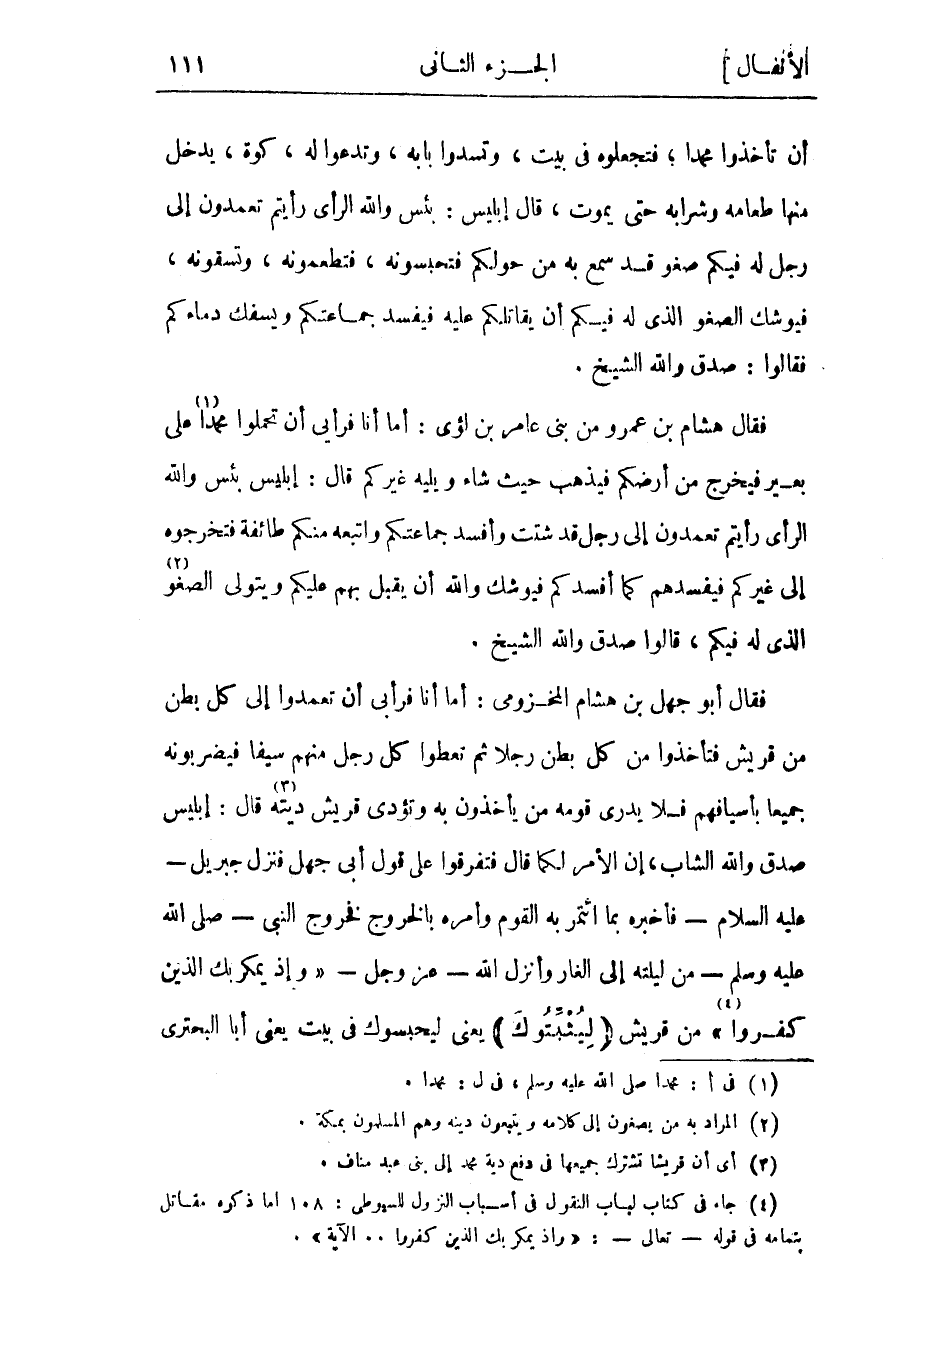 الأنفال]
الجزء الثانى
١١١
أن تأخذوا محمدا ؛ فتجعلوه فى بيت ، وتسدوا بابه ، وتدعوا له ، كوة ، يدخل
منها طعامه وشرابه حتى يموت ، قال إبليس : بئس والله الرأى رأيتم تعمدون إلى
رجل له فيكم صغو قد سمع به من حولكم فتحبسونه ، فتطعمونه ، وتسقونه ،
فيوشك الصغو الذى له فيكم أن يقاتلكم عليه فيفسد جماعتكم ويسفك دماءكم
فقالوا : صدق والله الشيخ .
فقال هشام بن عمرو من بنى عامر بن لؤى : أما أنا فرأيى أن تحملوا محمدا (١) على
بعير فيخرج من أرضكم فيذهب حيث شاء ويليه غيركم قال : إبليس بئس والله
الرأى رأيتم تعمدون إلى رجل قد شتت وأفسد جماعتكم واتبعه منكم طائفة فتخرجوه
إلى غيركم فيفسدهم كما أفسدكم فيوشك والله أن يقبل بهم عليكم ويتولى الصغو (٢)
الذى له فيكم ، قالوا صدق والله الشيخ .
فقال أبو جهل بن هشام المخزومى : أما أنا فرأيى أن تعمدوا إلى كل بطن
من قريش فتأخذوا من كل بطن رجلا ثم تعطوا كل رجل منهم سيفا فيضربونه
جميعا بأسيافهم فلا يدرى قومه من يأخذون به وتؤدى قريش ديته (٣) قال : إبليس
صدق والله الشاب ، إن الأمر لكما قال فتفرقوا على قول أبى جهل فنزل جبريل —
عليه السلام — فأخبره بما ائتمر به القوم وأمره بالخروج فخروج النبى — صلى الله
عليه وسلم — من ليلته إلى الغار وأنزل الله — عز وجل — « وإذ يمكر بك الذين
كفروا » (٤) من قريش ( لِيُثْبِتُوكَ ) يعنى ليحبسوك فى بيت يعنى أبا البحترى
(١) فى أ : محمدا صلى الله عليه وسلم ، فى ل : محمدا .
(٢) المراد به من يصغون إلى كلامه ويتبعون دينه وهم المسلمون بمكة .
(٣) أى أن قريشا تشترك جميعها فى دفع دية محمد إلى بنى عبد مناف .
(٤) جاء فى كتاب لباب النقول فى أسباب النزول للسيوطى : ١٠٨ اما ذكره مقاتل
بتمامه فى قوله — تعالى — : « واذ يمكر بك الذين كفروا .. الآية » .